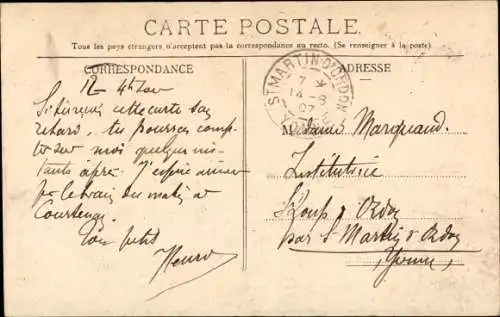 CARTE POSTALE.
Tous les pays étrangers n'acceptent pas la correspondance au recto. (Se renseigner à la poste)
CORRESPONDANCE
ADRESSE
ST MARTIN-D'ORDON
7
14 -8
07
YONNE
Si tu reçois cette carte sans
retard, tu pourras comp-
ter sur moi quelques ins-
tants après. J'espère arriver
par le train du matin à
Courtenay.
Ton petit
Henri
Madame Marquand.
Institutrice
St Loup d'Ordon
par St Martin d'Ordon
Yonne